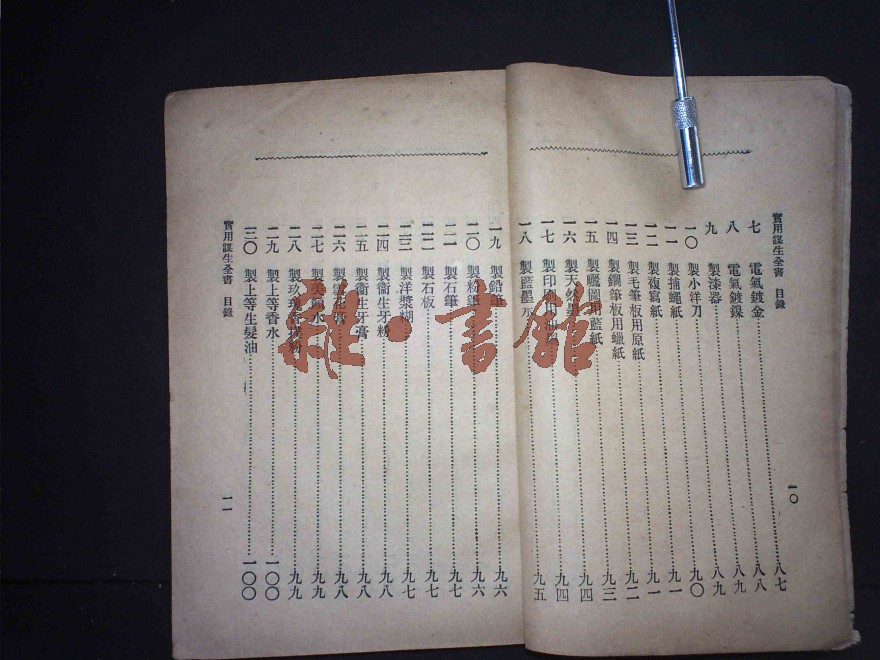 實用謀生全書 目錄
一〇
七 電氣鍍金……八七
八 電氣鍍鎳……八八
九 製漆器……八九
一〇 製小洋刀……八九
一一 製捕蠅紙……九〇
一二 製複寫紙……九一
一三 製毛筆板用原紙……九一
一四 製鋼筆板用蠟紙……九二
一五 製曬圖用藍紙……九三
一六 製天然……九四
一七 製印刷用……九四
一八 製藍墨水……九五
一九 製鉛筆……九六
二〇 製粉筆……九六
二一 製石筆……九七
二二 製石板……九七
二三 製洋漿糊……九七
二四 製衛生牙粉……九八
二五 製衛生牙膏……九八
二六 製雪花膏……九八
二七 製美顏水……九九
二八 製玫瑰粉……九九
二九 製上等香水……一〇〇
三〇 製上等生髮油……一〇〇
實用謀生全書 目錄
一一
雜·書館